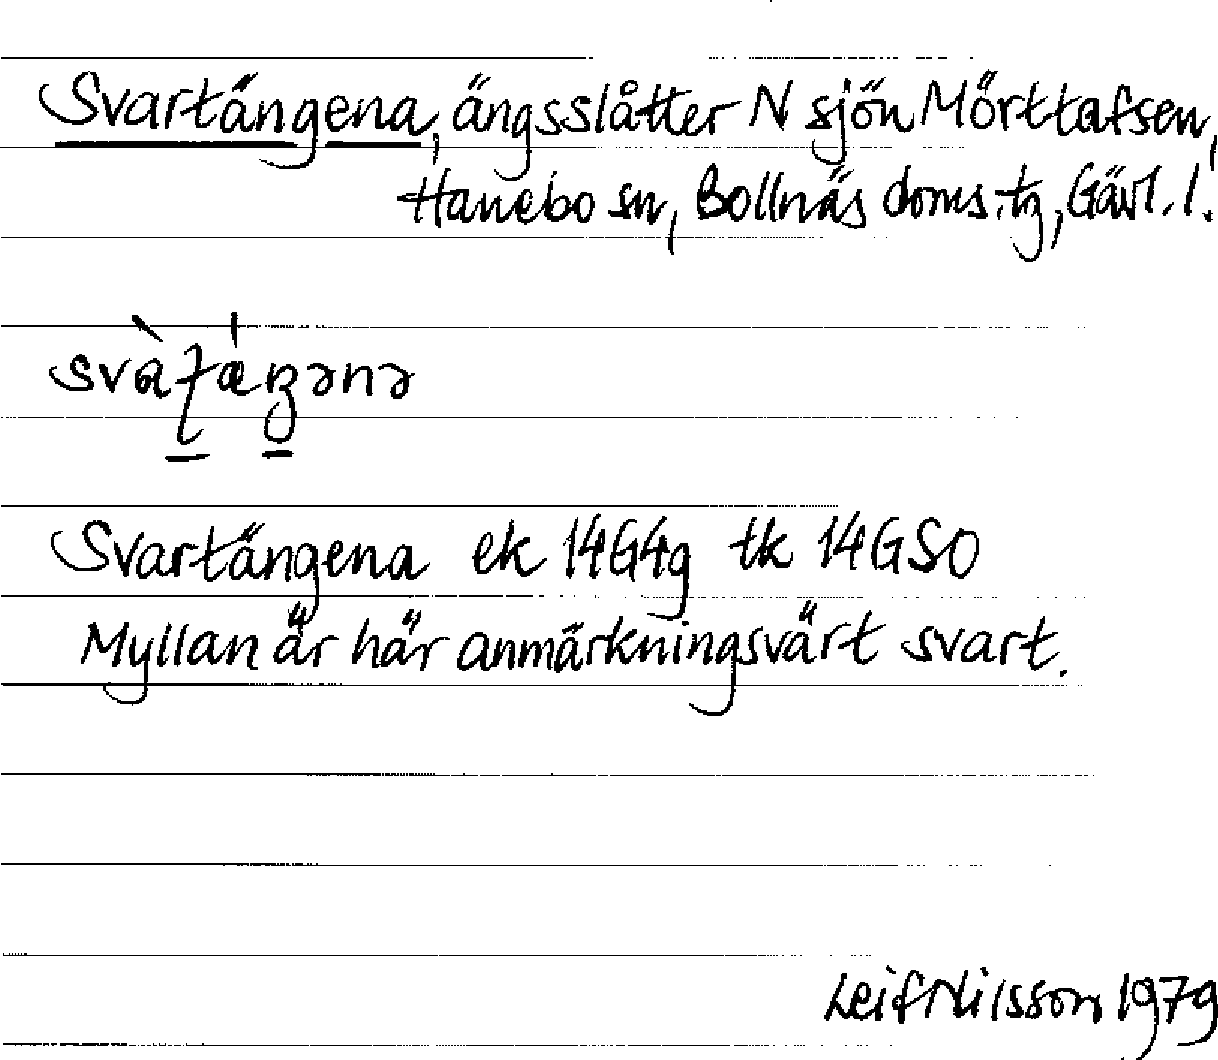 Svartängena, ängsslåtter N sjön Mörttafsen,
Hanebo sn, Bollnäs doms.tg, Gävl. l.
Svartängena ek 14G4g tk 14GSO
Myllan är här anmärkningsvärt svart.
Leif Nilsson 1979